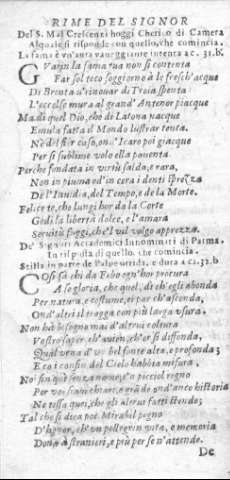 RIME DEL SIGNOR
Del S. Mal Crescenti hoggi Cherico di Camera
Al quale si risponde con quello, che comincia.
La fama è vn'aura vaneggiante intenta a c. 31.b.
la fama tua non si contenta
Far sol teco soggiorno à le fresch'acque
Di Brenta a rinouar di Troia spenta
L'eccelse mura al grand' Antenor piacque
Ma di quel Dio, che di Latona nacque
Emula fatta il Mondo lustrar tenta.
Nè del fier caso, on' Icaro poi giacque
Per sì sublime volo ella pauenta.
Perche fondata in virtù salda, e rara,
Non in piuma od'in cera i denti sprezza
De l'Inuidia, del Tempo, e de la Morte.
Felice te, che lungi hor da la Corte
Godi la libertà dolce, e l'amara
Seruitù fuggi, che'l vil volgo apprezza.
De' Signori Accademici Innominati di Parma.
In risposta di quello, che comincia.
Stilla in parte de l'alpe vrrida, e dura a c. 32.b
Così sà chi da Febo ogn'hor procura
A se gloria, che quel, di ch'egli abonda
Per natura, e costume, ei par ch'asconda,
Ond'altri il tragga con più larga vsura.
Non hà bisogno mai d'altrui coltura
Vostro saper, ch' ch'or si diffonda,
Qual vena d'vn bel fonte alta, e profonda;
E ca i confin del Cielo habbia misura.
Noi sin quì senza nome, e'n picciol regno
Per voi siam chiari, e già ne ond'anco historia
Ne tessa quei, che gli altrui fatti stende;
Tal che si dica poi. Mirabil pegno
D'honor, ch' vn pellegrin vita, e memoria
Dona à stranieri, e più per se n'attende.
De